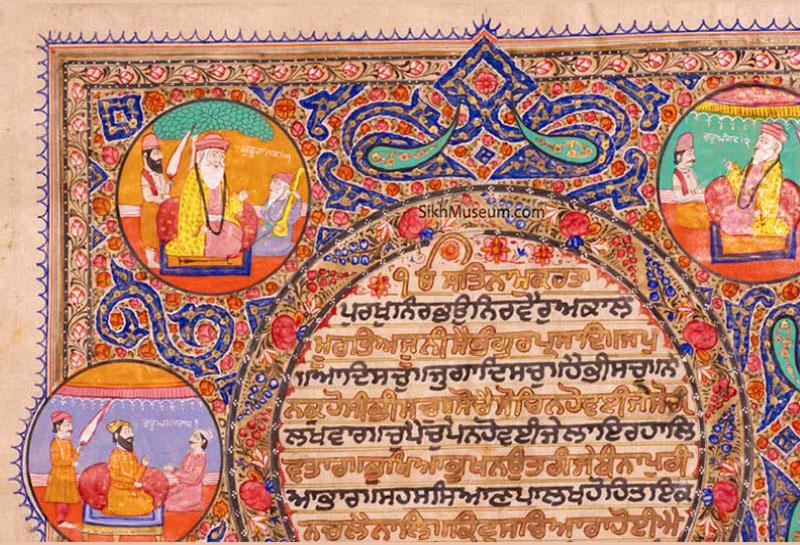 SikhMuseum.com
ੴ ਸਤਿਨਾਮੁਕਰਤਾ
ਪੁਰਖੁਨਿਰਭਉਨਿਰਵੈਰੁਅਕਾਲ
ਮੂਰਤਿਅਜੂਨੀਸੈਭੰਗੁਰਪ੍ਰਸਾਦਿ॥ਜਪੁ
॥ਆਦਿਸਚੁ॥ਜੁਗਾਦਿਸਚੁ॥ਹੈਭੀਸਚੁਨਾ
ਨਕਹੋਸੀਭੀਸਚੁ॥ਸੋਚੈਸੋਚਿਨਹੋਵਈਜੇਸੋਚੀ
ਲਖਵਾਰ॥ਚੁਪੈਚੁਪਨਹੋਵਈਜੇਲਾਇਰਹਾਲਿ
ਵਤਾਰ॥ਭੁਖਿਆਭੁਖਨਉਤਰੀਜੇਬੰਨਾਪੁਰੀ
ਆਭਾਰ॥ਸਹਸਸਿਆਣਪਾਲਖਹੋਹਿਤਇਕ
ਨਚਲੈਨਾਲਿ॥ਕਿਵਸਚਿਆਰਾਹੋਈਐ